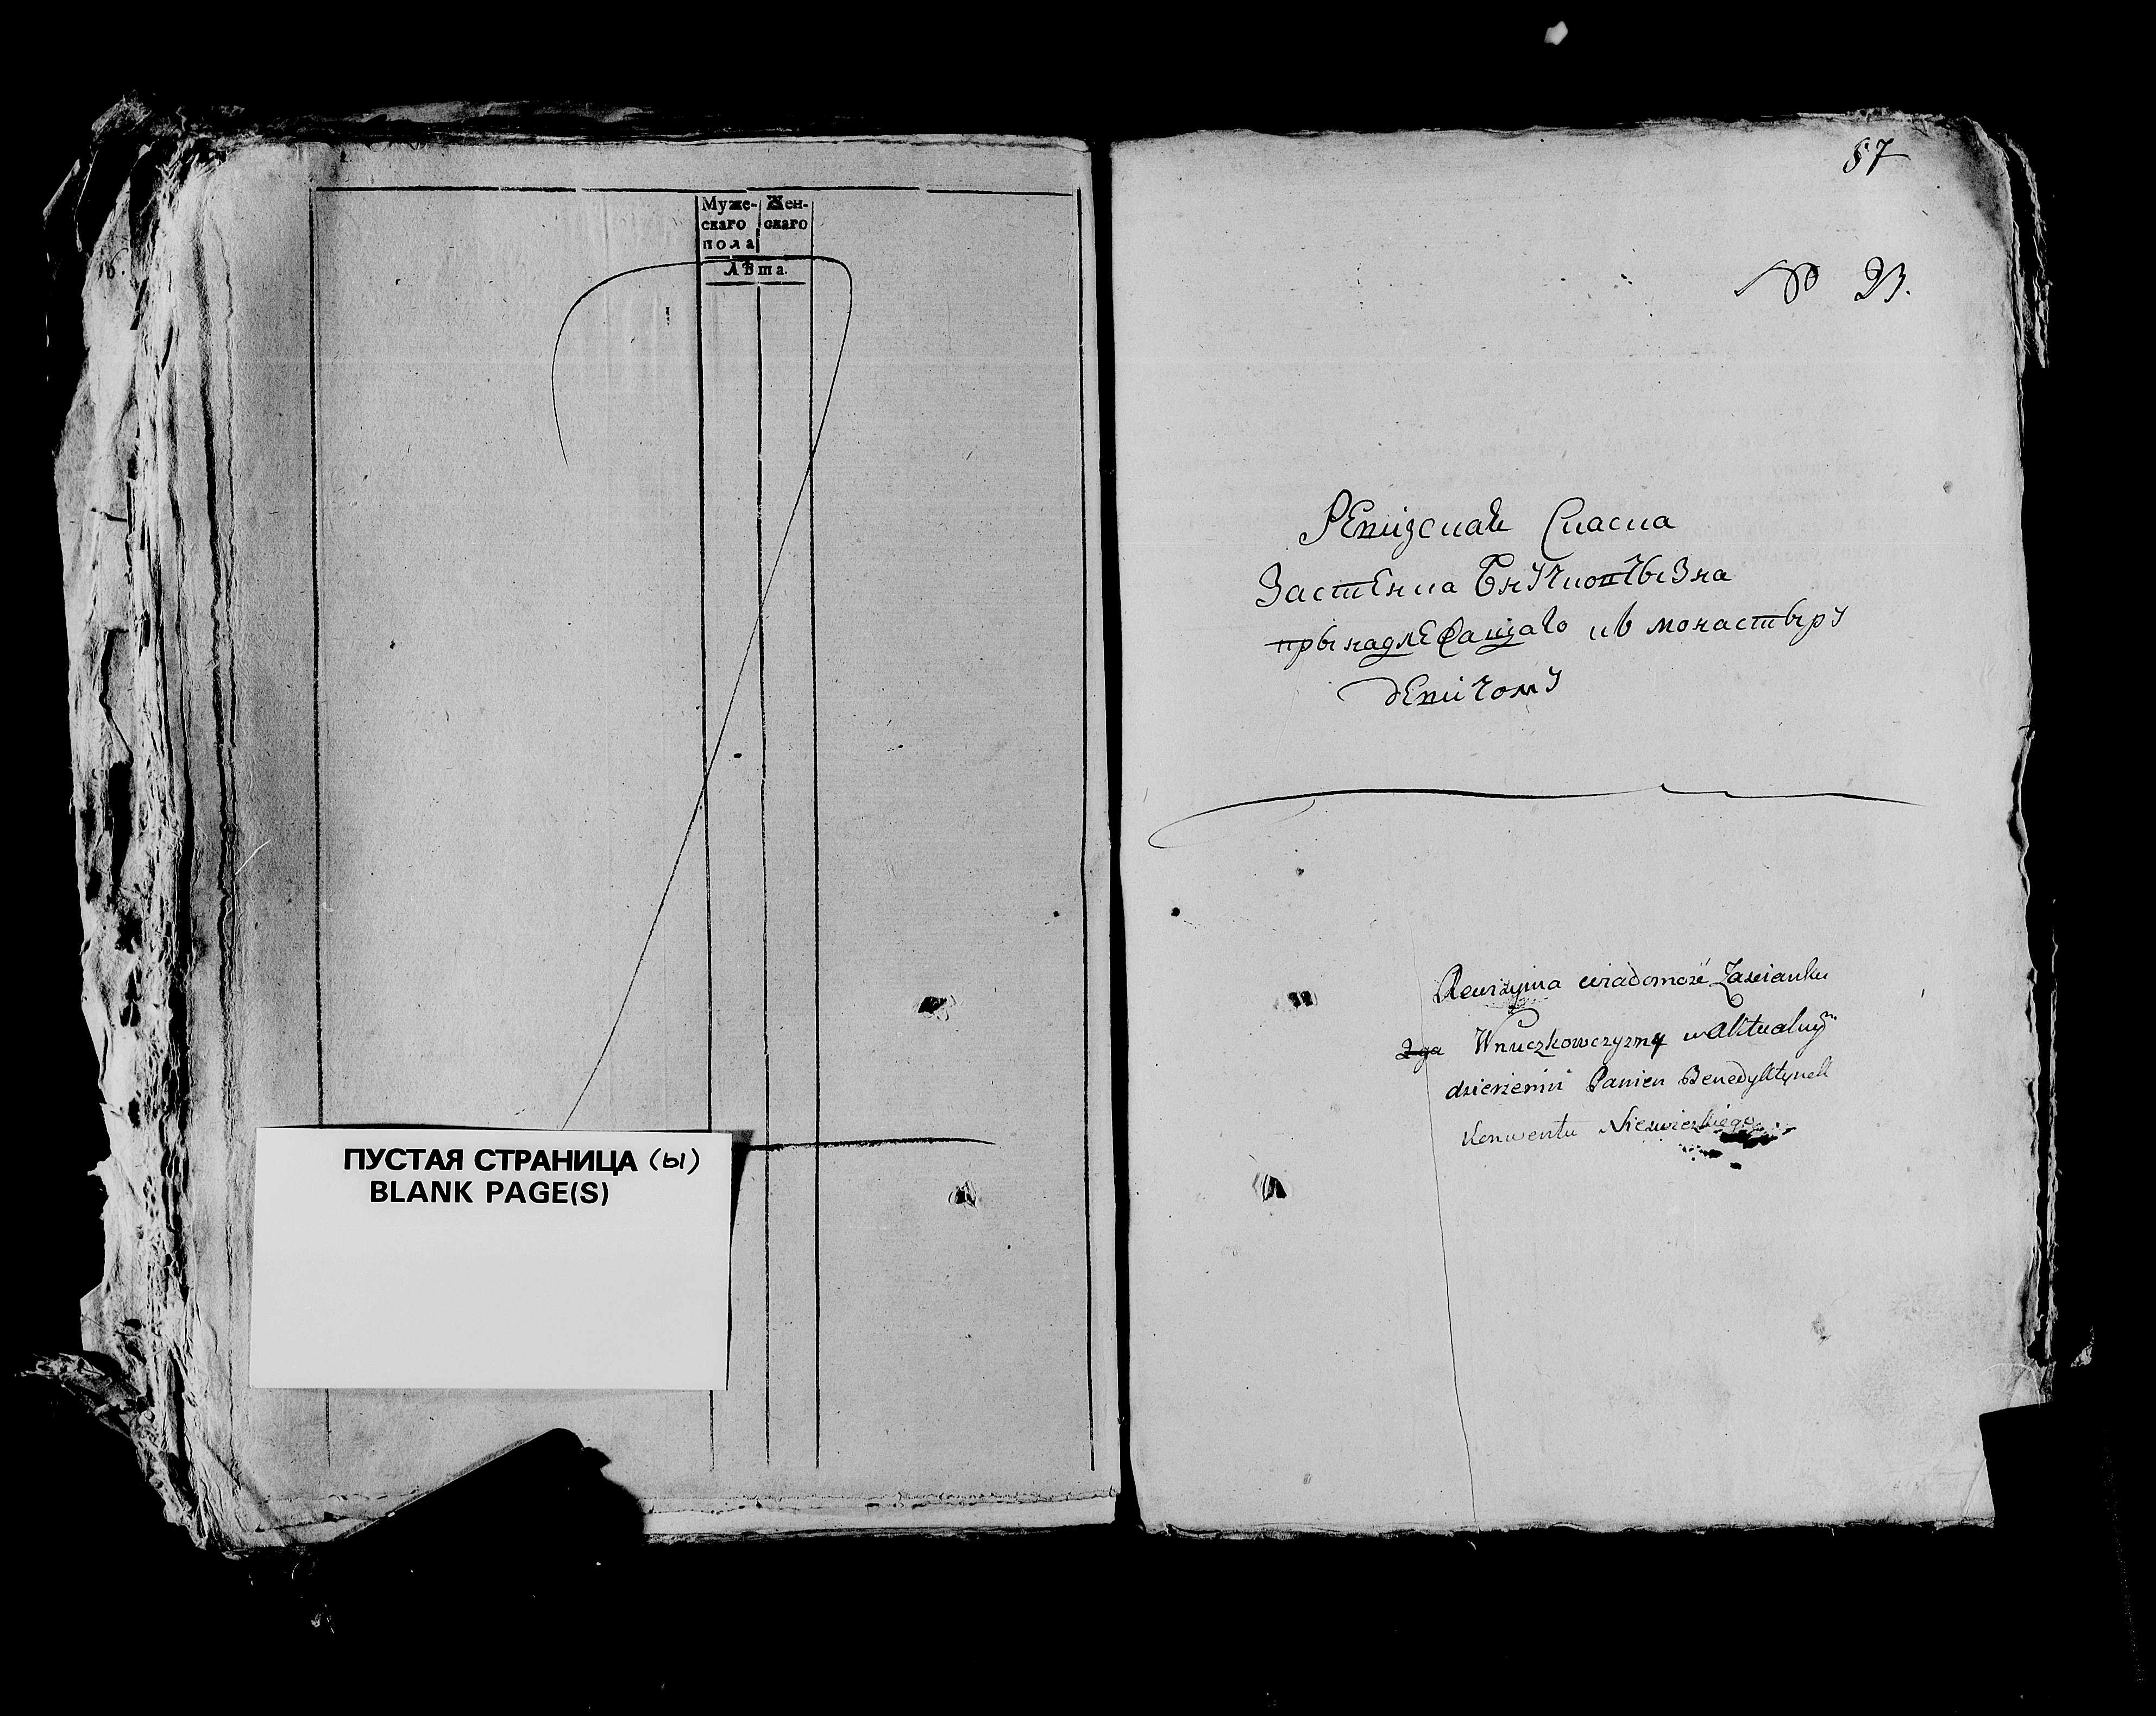 Муже- Жен-
скаго скаго
пола
Лѣта.
ПУСТАЯ СТРАНИЦА (ы)
BLANK PAGE(S)
57
№ 23.
Ревизская Скаска
Застенка Внучковчызна
прынадлежащаго къ монастыру
девичому
Rewizyina wiadomość Zaścianku
Wnuczkowczyzny w aktualnym
dzierżeniu Panien Benedyktynek
Konwentu Nieświezkiego